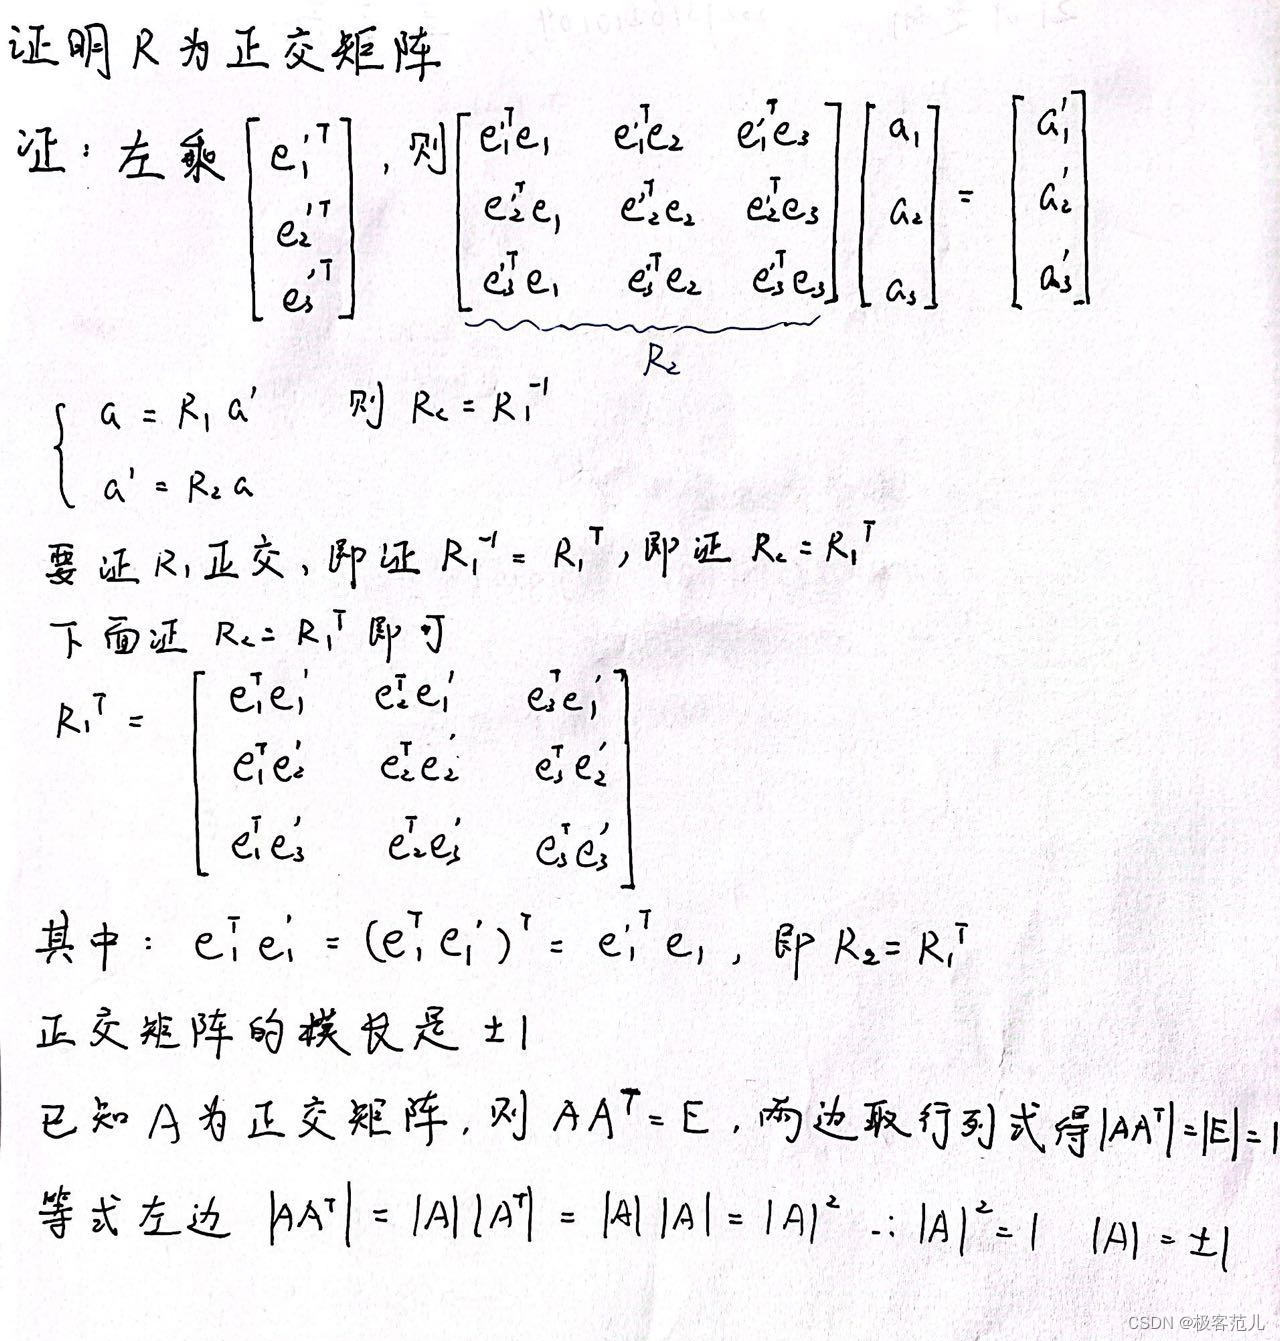 证明 R 为正交矩阵
证: 左乘 [e₁'ᵀ; e₂'ᵀ; e₃'ᵀ], 则 [e₁'ᵀe₁ e₁'ᵀe₂ e₁'ᵀe₃; e₂'ᵀe₁ e₂'ᵀe₂ e₂'ᵀe₃; e₃'ᵀe₁ e₃'ᵀe₂ e₃'ᵀe₃] [a₁; a₂; a₃] = [a₁'; a₂'; a₃']
R₂
{ a = R₁ a' 则 R₂ = R₁⁻¹
a' = R₂ a
要证 R₁ 正交, 即证 R₁⁻¹ = R₁ᵀ, 即证 R₂ = R₁ᵀ
下面证 R₂ = R₁ᵀ 即可
R₁ᵀ = [e₁ᵀe₁' e₂ᵀe₁' e₃ᵀe₁'; e₁ᵀe₂' e₂ᵀe₂' e₃ᵀe₂'; e₁ᵀe₃' e₂ᵀe₃' e₃ᵀe₃']
其中: e₁ᵀe₁' = (e₁ᵀe₁')ᵀ = e₁'ᵀe₁, 即 R₂ = R₁ᵀ
正交矩阵的模长是 ±1
已知 A 为正交矩阵, 则 AAᵀ = E, 两边取行列式得|AAᵀ|=|E|=1
等式左边 |AAᵀ| = |A||Aᵀ| = |A||A| = |A|² ∴|A|² = 1 |A| = ±1
CSDN @极客范儿